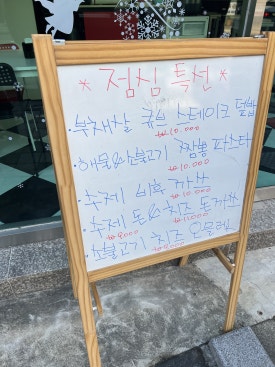 * 점심 특선 *
· 부채살 큐브 스테이크 덮밥
₩10.000
· 해물&소불고기 짬뽕 파스타
₩10.000
· 수제 비후 까스
₩10.000
· 수제 돈&치즈 돈까스
₩9000 ₩11000
· 소불고기 치즈 오믈렛